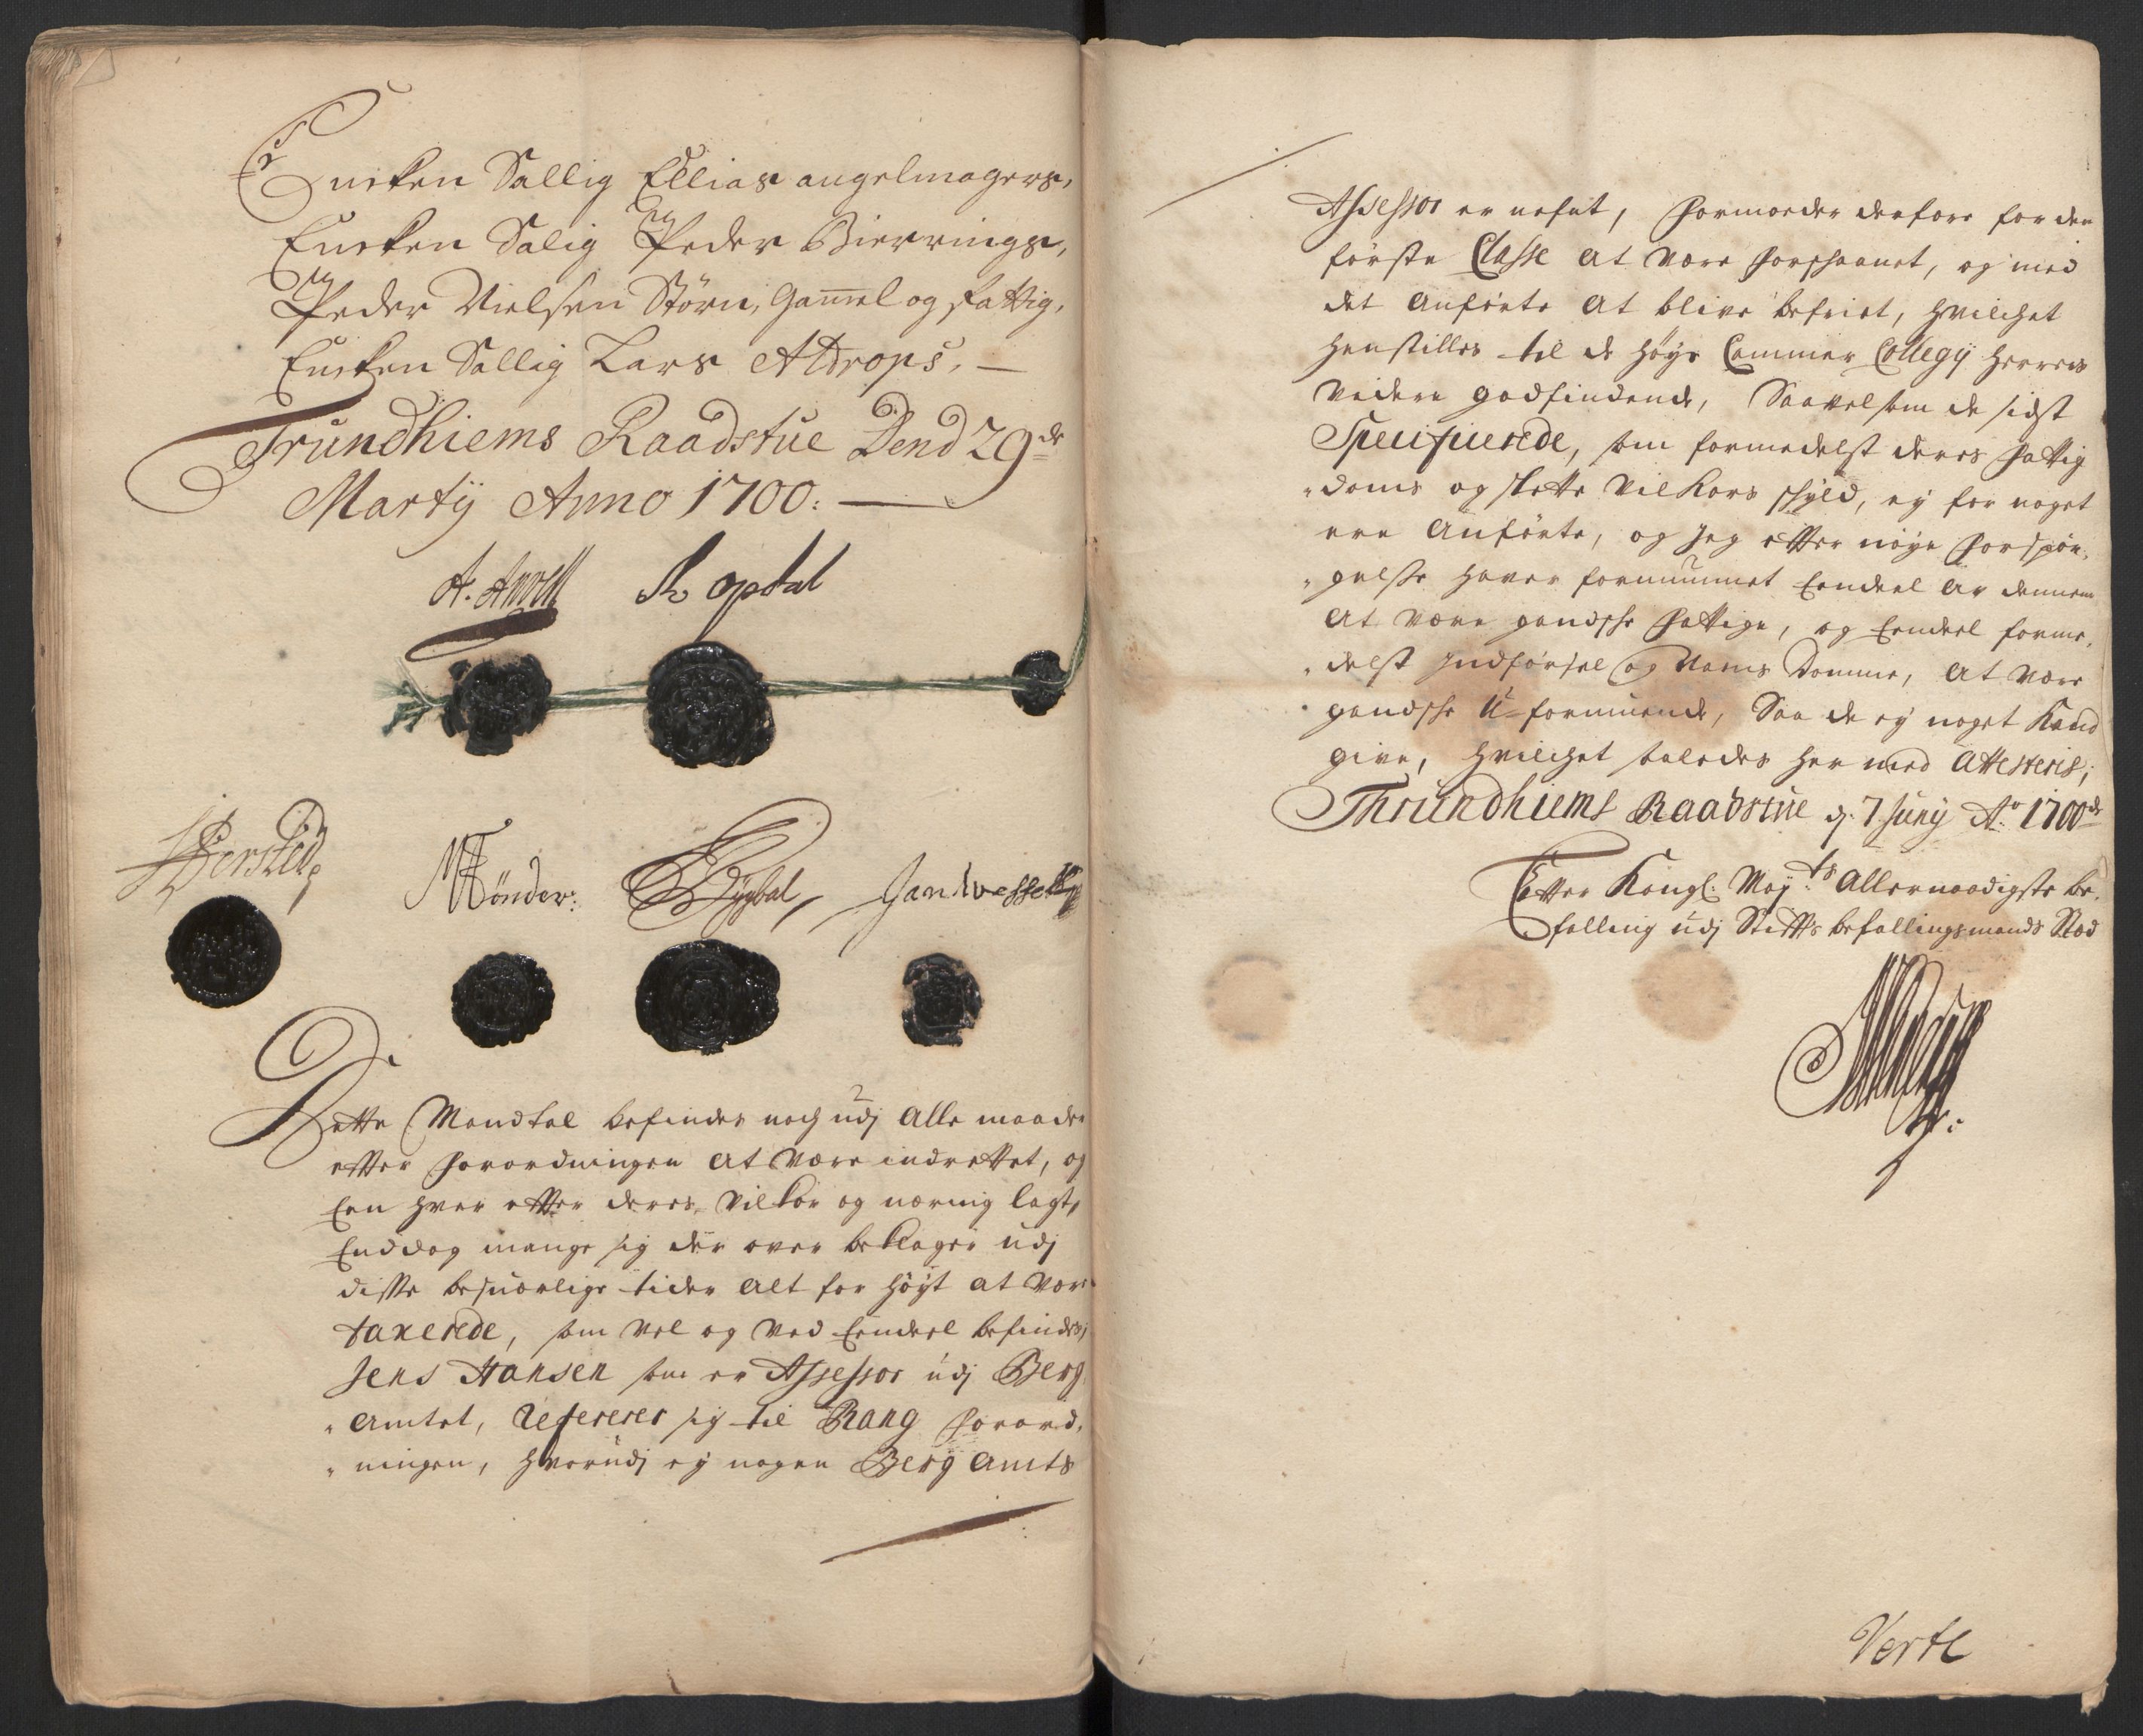 Encken Sallig Ellias angelmagers,
Encken Salig Peder Bierrings,
Peder Nielsen Störn, Gam̅el og fattig,
Encken Sallig Lars Altrops, —
Trundhiems Raadstue Dend 29de
Martij Anno 1700. —
A. Angell
Dette Mandtal befindes nock udj alle maader
effter forordningen at være indrettet, og
Een hver effter deres vilkor og næring lagt,
Enddog mange sig der over beklager udj
disse besuærlige tider alt for høyt at være
taxerede, som vel og ved Eendeel befindes,
Jens Hansen som er Assessor udj Berg
amtet, refererer sig til Rang forord,
ningen, hvorudj ey nogen Berg amts
Assessor er nefnt, formoeder derfore for den
første Classe at være forschaanet, og med
det anførte at blive befriet, hvilchet
henstilles til de høye Cammer Collegij herrers
videre godfindende, Saavelsom de sidst
Specificerede, som formedelst deres fattig
doms og slette vilkors skyld, ey for noget
ere anførte, og Jeg effter nøye forspør,
gelse haver fornummet Eendeel av dennem
at være gandsche fattige, og Eendeel forme,
delst Indførsel og Nams Domme, at være
gandsche U-formuende, Saa de ey noget kand
give, hvilchet saaledes her med attesteris,
Thrundhiems Raadstue d. 7. Junij Ao 1700de
Effter Kongl: Mayts allernaadigste be,
falling udj Stiffts befallingsmands Stæd
Verte